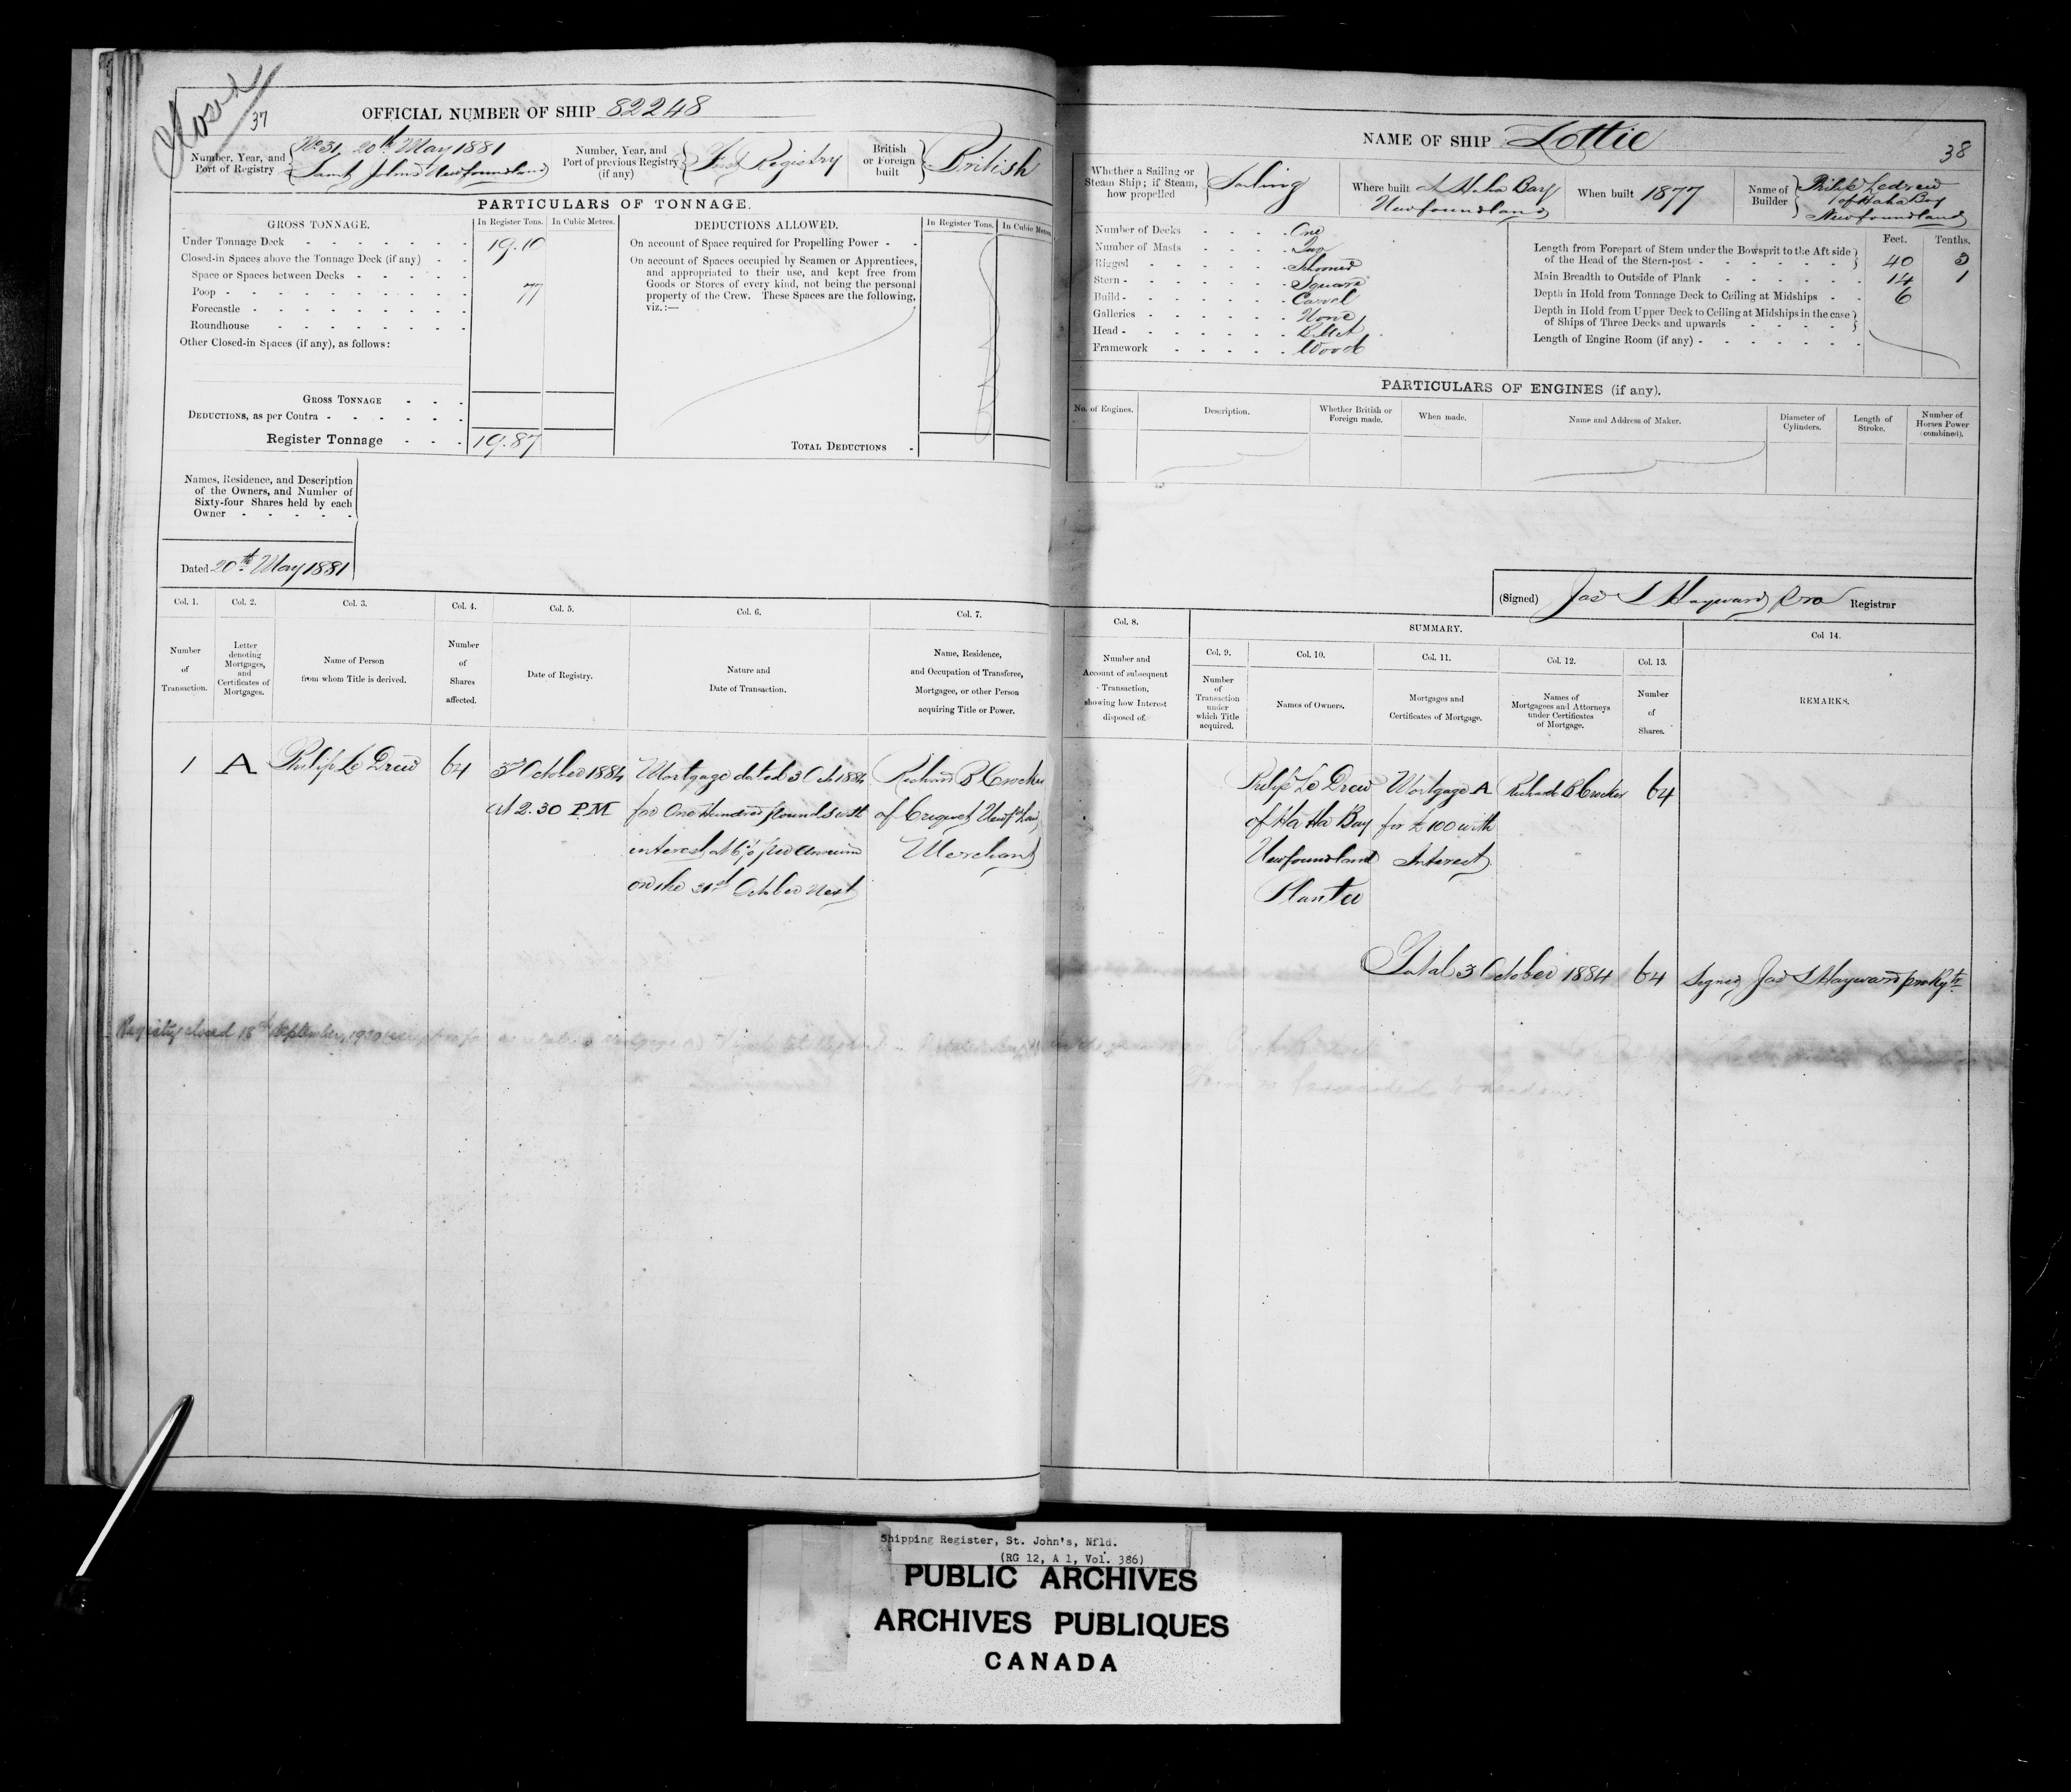 Closed
37
OFFICIAL NUMBER OF SHIP 82248
Number, Year, and Port of Registry
No 31, 20th May 1881
Saint John's Newfoundland
Number, Year, and Port of previous Registry (if any)
First Registry
British or Foreign built
British
PARTICULARS OF TONNAGE.
GROSS TONNAGE.
In Register Tons.
In Cubic Metres.
Under Tonnage Deck 19.10
Closed-in Spaces above the Tonnage Deck (if any)
Space or Spaces between Decks
Poop 77
Forecastle
Roundhouse
Other Closed-in Spaces (if any), as follows:
GROSS TONNAGE
DEDUCTIONS, as per Contra
Register Tonnage 19.87
DEDUCTIONS ALLOWED.
In Register Tons.
In Cubic Metres
On account of Space required for Propelling Power
On account of Spaces occupied by Seamen or Apprentices,
and appropriated to their use, and kept free from
Goods or Stores of every kind, not being the personal
property of the Crew. These Spaces are the following,
viz.:—
TOTAL DEDUCTIONS
Names, Residence, and Description
of the Owners, and Number of
Sixty-four Shares held by each
Owner
Dated 20th May 1881
Col. 1.
Number of Transaction.
Col. 2.
Letter denoting Mortgages, and Certificates of Mortgages.
Col. 3.
Name of Person from whom Title is derived.
Col. 4.
Number of Shares affected.
Col. 5.
Date of Registry.
Col. 6.
Nature and Date of Transaction.
Col. 7.
Name, Residence, and Occupation of Transferee, Mortgagee, or other Person acquiring Title or Power.
1
A
Philip Le Drew
64
3rd October 1884
at 2.30 P.M
Mortgage dated 3 Oct 1884
for One Hundred pounds with
interest at 6% per annum
on the 31st October Next
Richard B Crocker
of Criquet Newfdland
Merchant
Registry closed 18th September, 1920
NAME OF SHIP Lottie
38
Whether a Sailing or Steam Ship; if Steam, how propelled
Sailing
Where built at Haha Bay
Newfoundland
When built 1877
Name of Builder
Philip Ledrew
of Haha Bay
Newfoundland
Number of Decks One
Number of Masts Two
Rigged Schooner
Stern Square
Build Carvel
Galleries None
Head Billet
Framework Wood
Feet.
Tenths.
Length from Forepart of Stem under the Bowsprit to the Aft side
of the Head of the Stern-post 40 3
Main Breadth to Outside of Plank 14 1
Depth in Hold from Tonnage Deck to Ceiling at Midships 6
Depth in Hold from Upper Deck to Ceiling at Midships in the case
of Ships of Three Decks and upwards
Length of Engine Room (if any)
PARTICULARS OF ENGINES (if any).
No. of Engines.
Description.
Whether British or Foreign made.
When made.
Name and Address of Maker.
Diameter of Cylinders.
Length of Stroke.
Number of Horses Power (combined).
(Signed) Jas S Hayward Pro Registrar
Col. 8.
Number and Account of subsequent Transaction, showing how Interest disposed of.
SUMMARY.
Col. 9.
Number of Transaction under which Title acquired.
Col. 10.
Names of Owners.
Col. 11.
Mortgages and Certificates of Mortgage.
Col. 12.
Names of Mortgagees and Attorneys under Certificates of Mortgage.
Col. 13.
Number of Shares.
Col 14.
REMARKS.
Philip Le Drew
of Ha Ha Bay
Newfoundland
Planter
Mortgage A
for £100 with
Interest
Richard B Crocker
64
Total 3 October 1884 64
Signed Jas S Hayward pro Rgtr
Shipping Register, St. John's, Nfld.
(RG 12, A 1, Vol. 386)
PUBLIC ARCHIVES
ARCHIVES PUBLIQUES
CANADA